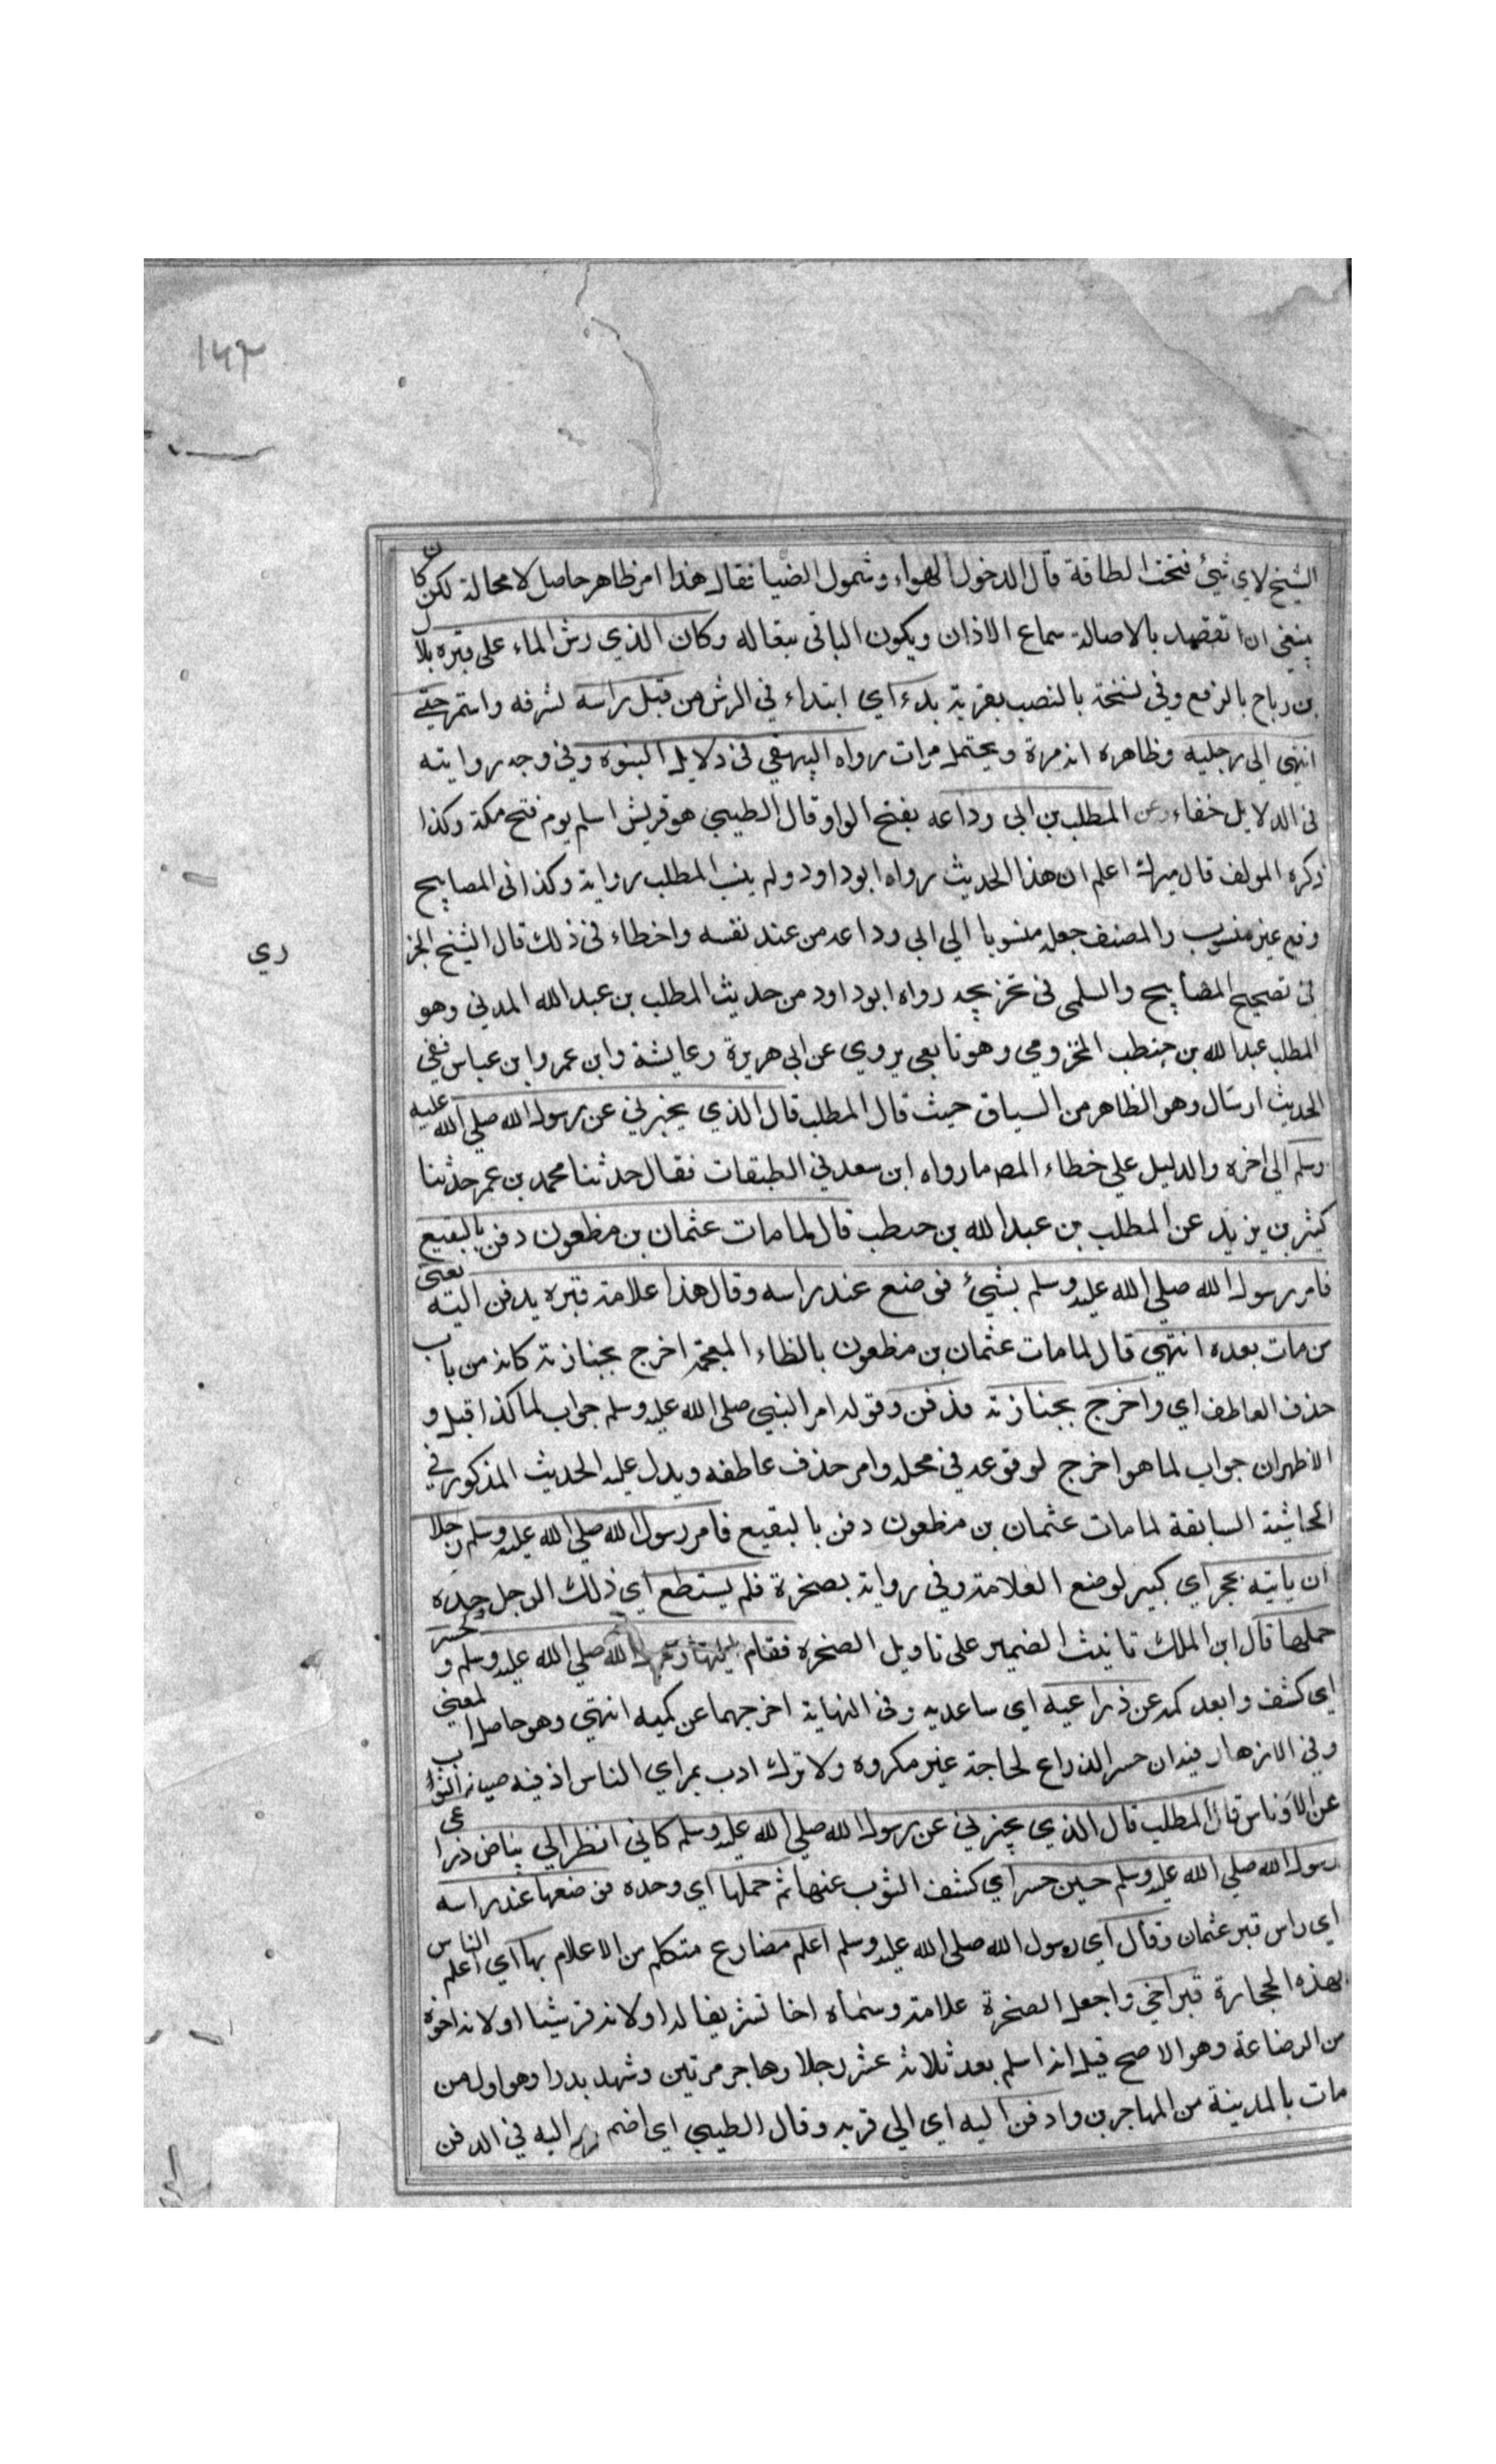 ١٤٣
الشيخ لاي شئ فتحت الطاقة قال لدخول الهواء وشمول الضيا فقال هذا امر ظاهر حاصل لا محالة لكن كان
ينبغي ان تقصد بالاصالة سماع الاذان ويكون الباقي تبعا له وكان الذي رش الماء على قبره بلال
بن رباح بالرفع وفي نسخة بالنصب بقربة بدء اي ابتداء في الرش من قبل راسه لشرفه واستمر حتى
انتهى الى رجليه وظاهره انه مرة ويحتمل مرات رواه البيهقي في دلايل النبوه وفي وجه روايته
في الدلايل خفاء وعن المطلب بن ابي وداعه بفتح الواو قال الطيبي هو قريش اسلم يوم فتح مكة وكذا
ذكره المولف قال ميرك اعلم ان هذا الحديث رواه ابو داود ولم ينسب المطلب رواية وكذا في المصابيح
وقع غير منسوب والمصنف جعله منسوبا الي ابي وداعه من عند نفسه واخطاء في ذلك قال الشيخ الجز
ري
في تصحيح المصابيح والسلمي في تخريجه رواه ابو داود من حديث المطلب بن عبد الله المدني وهو
المطلب عبد الله بن حنطب المخزومي وهو تابعي يروي عن ابي هريرة وعايشة وابن عمر وابن عباس ففي
الحديث ارسال وهو الظاهر من السياق حيث قال المطلب قال الذي يخبرني عن رسول الله صلي الله عليه
وسلم الي اخره والدليل علي خطاء المصـ ما رواه ابن سعد في الطبقات فقال حدثنا محمد بن عمر حدثنا
كثير بن يزيد عن المطلب بن عبد الله بن حنطب قال لما مات عثمان بن مظعون دفن بالبقيع
فامر رسول الله صلي الله عليه وسلم بشيئ فوضع عند راسه وقال هذا علامة قبره يدفن اليه يعني
من مات بعده انتهي قال لما مات عثمان بن مظعون بالظاء المعجمة اخرج بجنازته كانه من باب
حذف العاطف اي واخرج بجنازته فدفن وقوله امر النبي صلي الله عليه وسلم جواب لما كذا قيل و
الاظهر ان جواب لما هو اخرج لوقوعه في محله وامر حذف عاطفه ويدل عليه الحديث المذكور في
الحاشية السابقة لما مات عثمان بن مظعون دفن بالبقيع فامر رسول الله صلي الله عليه وسلم رجلا
ان ياتيه بحجر اي كبير لوضع العلامة وفي رواية بصخرة فلم يستطع اي ذلك الرجل وحده
حملها قال ابن الملك تانيث الضمير على تاويل الصخره فقام الله صلي الله عليه وسلم وحسر
اي كشف وابعد كمه عن ذراعيه اي ساعديه وفي النهاية اخرجهما عن كميه انتهي وهو حاصل المعنى
وفي الازهار فيه ان حسر الذراع لحاجة غير مكروه ولا ترك ادب بمراي الناس اذ فيه صيانة الثواب
عن الاوناس قال المطلب قال الذي يخبرني عن رسول الله صلي الله عليه وسلم كاني انظر الي بياض ذراعي
رسول الله صلي الله عليه وسلم حين حسر اي كشف الثوب عنها ثم حملها اي وحده فوضعها عند راسه
اي راس قبر عثمان وقال اي رسول الله صلي الله عليه وسلم اعلم مضارع متكلم من الاعلام بها اي اعلم الناس
بهذه الحجارة قبر اخي واجعل الصخرة علامة وسماه اخا تشريفا له او لانه قرشيا او لانه اخوه
من الرضاعة وهو الاصح قيل انه اسلم بعد ثلاثة عشر رجلا وهاجر مرتين وشهد بدرا وهو اول من
مات بالمدينة من المهاجرين وادفن اليه اي الي قربه وقال الطيبي اي اضم اليه في الدفن